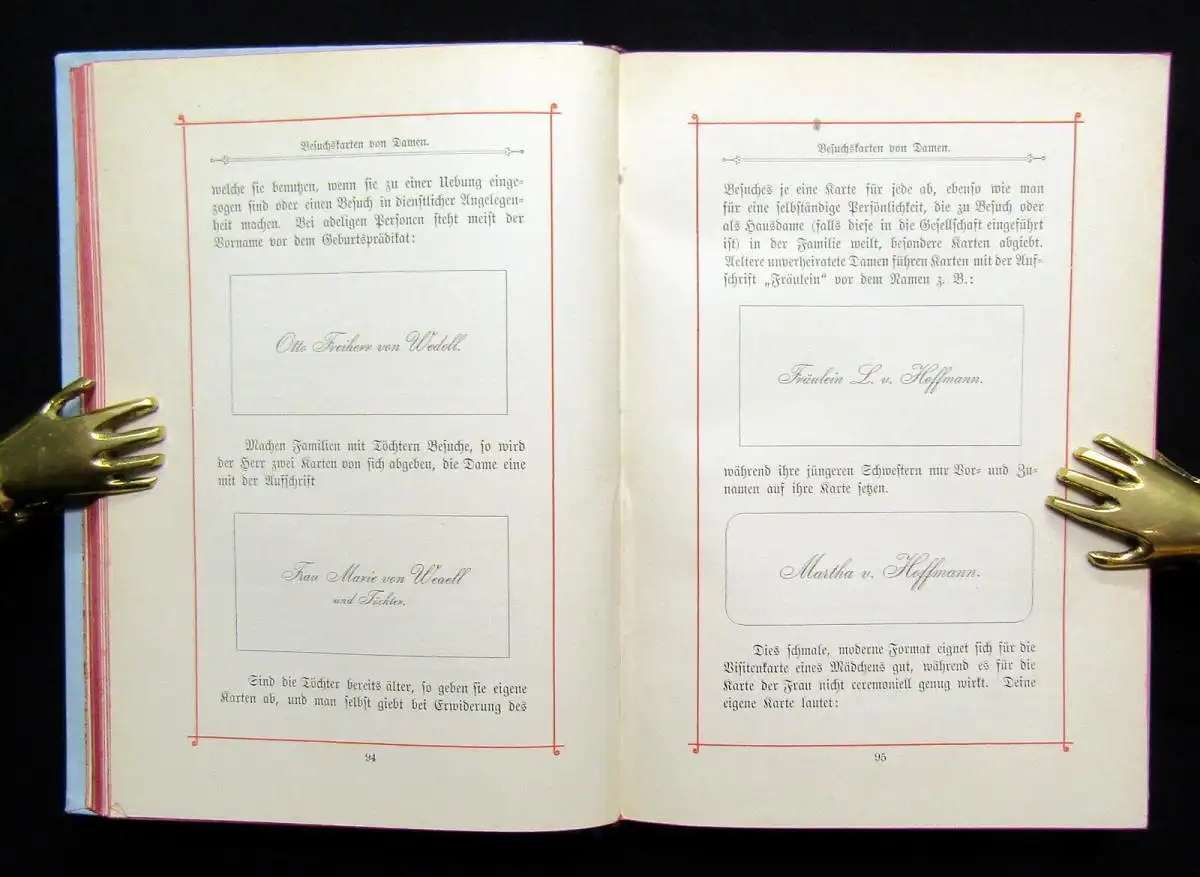 Besuchskarten von Damen.
welche sie benutzen, wenn sie zu einer Uebung einge-
zogen sind oder einen Besuch in dienstlicher Angelegen-
heit machen. Bei adeligen Personen steht meist der
Vorname vor dem Geburtsprädikat:
Otto Freiherr von Wedell.
Machen Familien mit Töchtern Besuche, so wird
der Herr zwei Karten von sich abgeben, die Dame eine
mit der Aufschrift
Frau Marie von Wedell
und Töchter.
Sind die Töchter bereits älter, so geben sie eigene
Karten ab, und man selbst giebt bei Erwiderung des
94
Besuchskarten von Damen.
Besuches je eine Karte für jede ab, ebenso wie man
für eine selbständige Persönlichkeit, die zu Besuch oder
als Hausdame (falls diese in die Gesellschaft eingeführt
ist) in der Familie weilt, besondere Karten abgiebt.
Aeltere unverheiratete Damen führen Karten mit der Auf-
schrift „Fräulein“ vor dem Namen z. B.:
Fräulein L. v. Hoffmann.
während ihre jüngeren Schwestern nur Vor- und Zu-
namen auf ihre Karte setzen.
Martha v. Hoffmann.
Dies schmale, moderne Format eignet sich für die
Visitenkarte eines Mädchens gut, während es für die
Karte der Frau nicht ceremoniell genug wirkt. Deine
eigene Karte lautet:
95